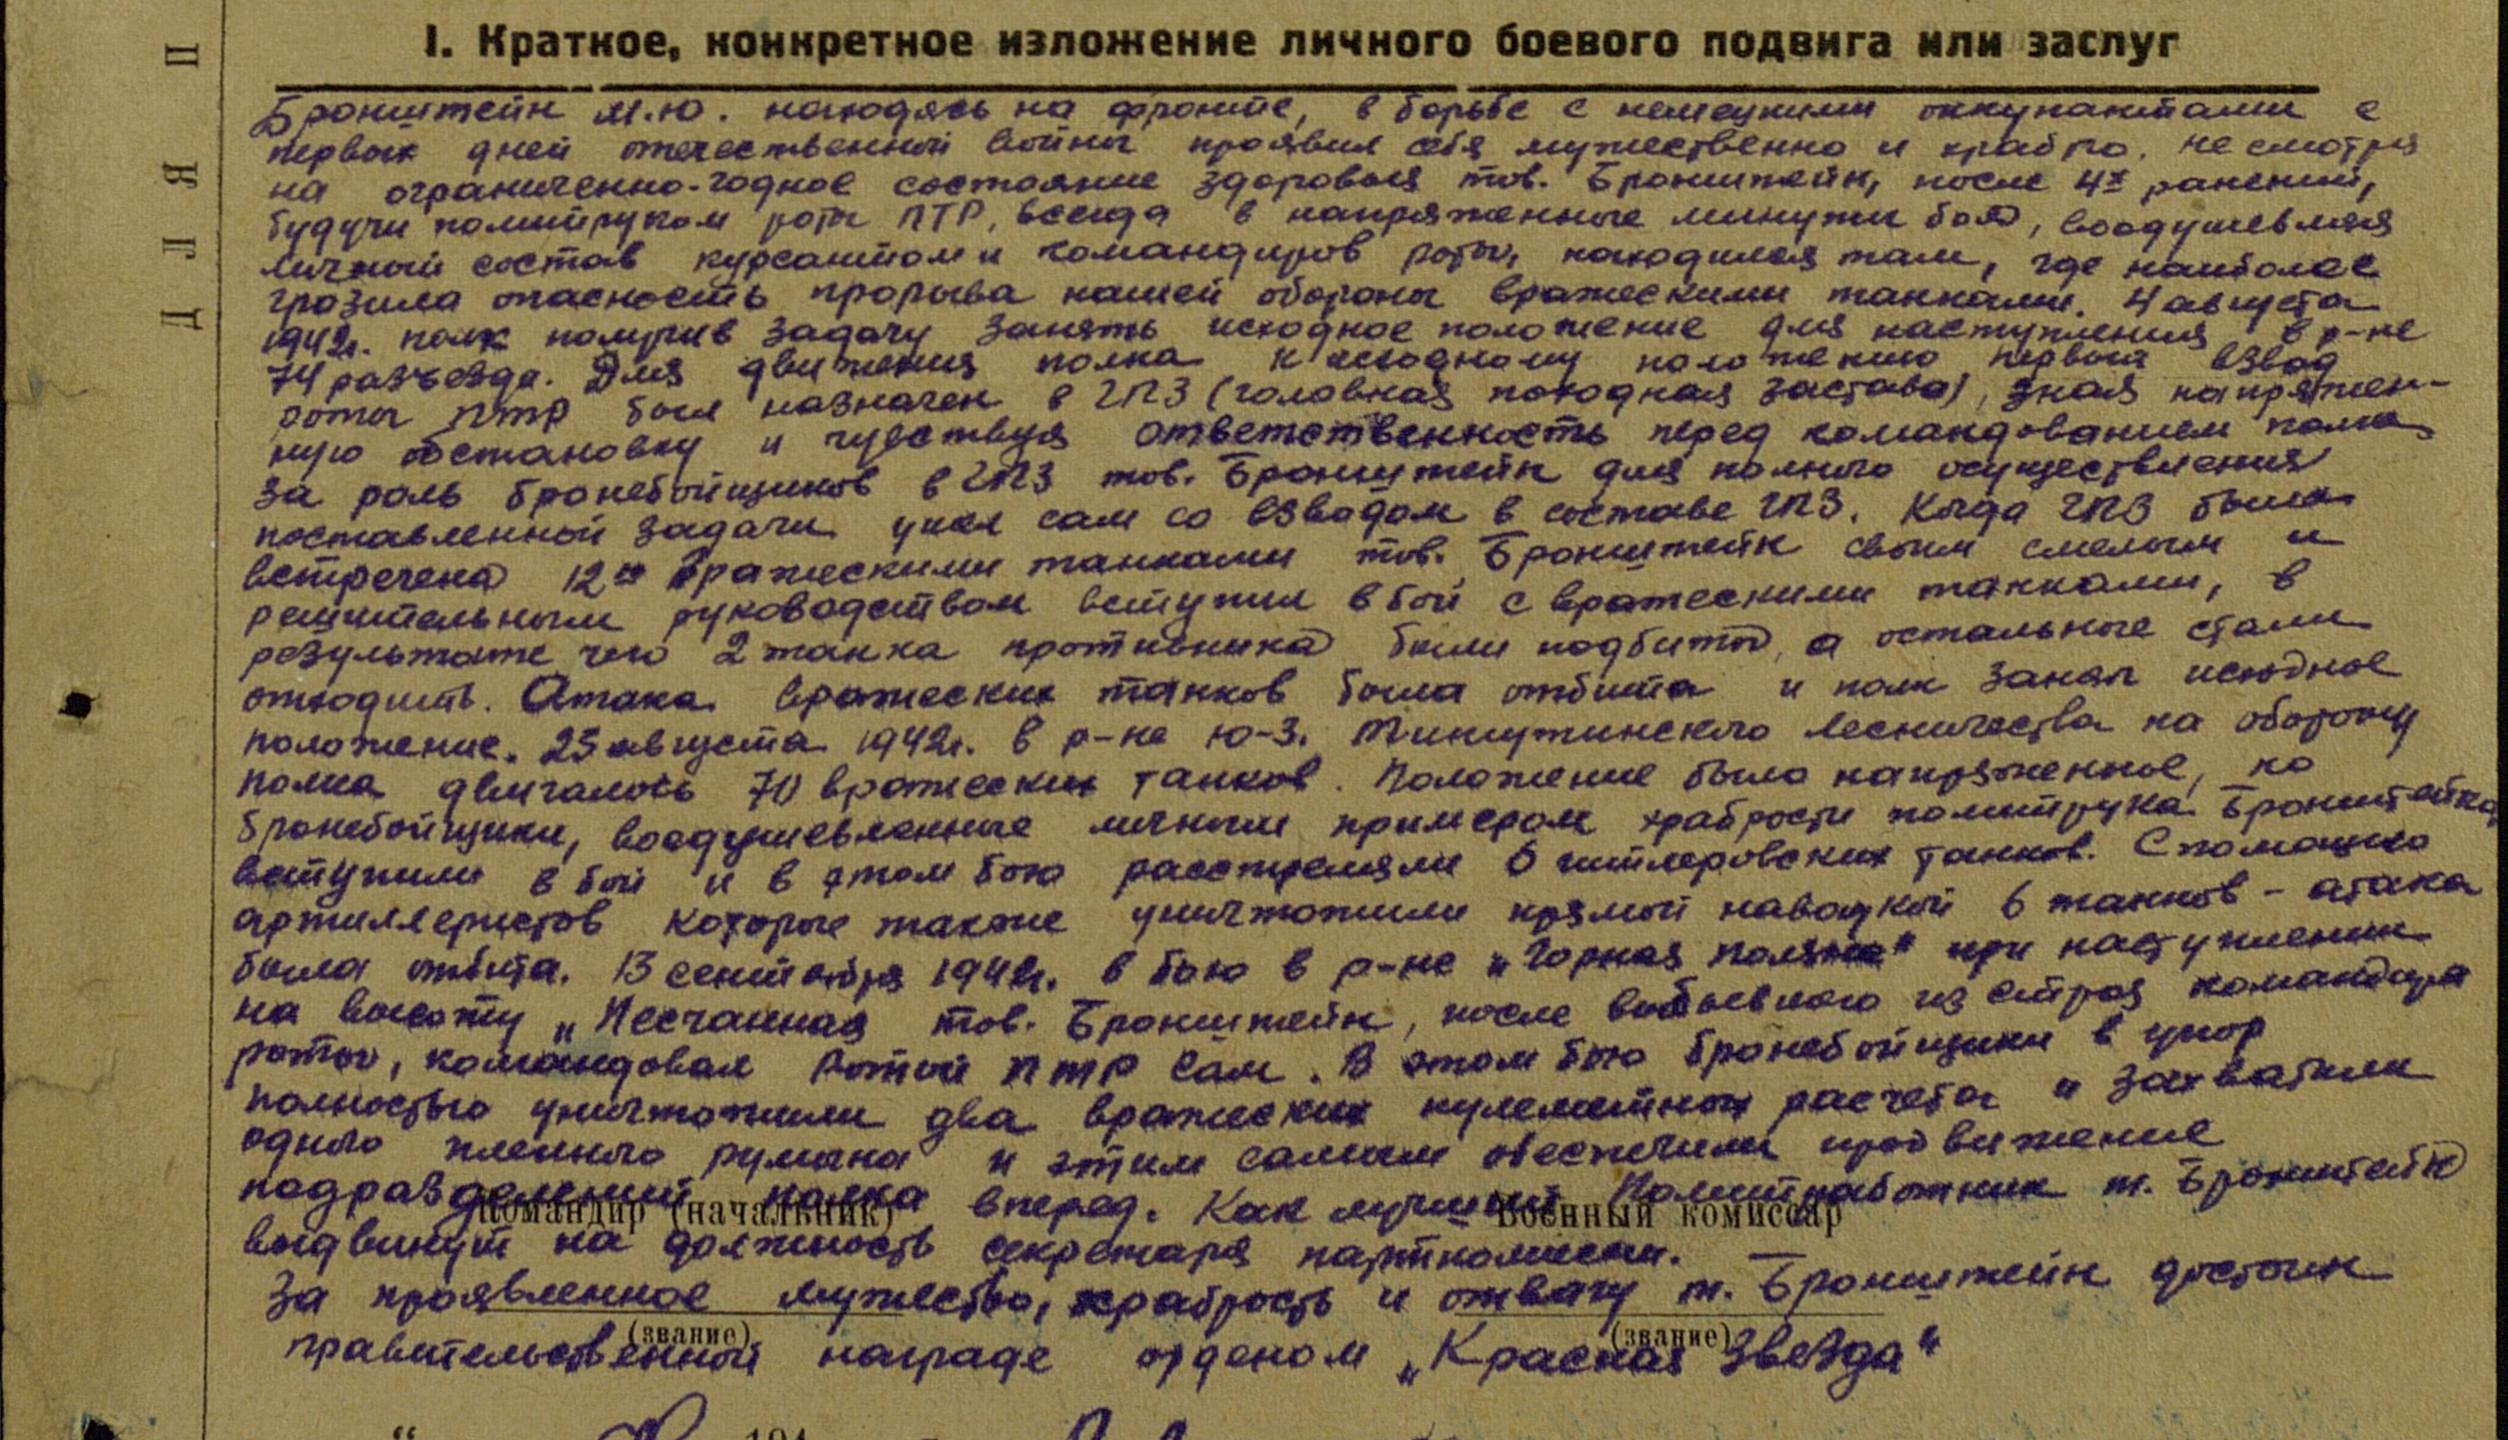 I. Краткое, конкретное изложение личного боевого подвига или заслуг
Бронштейн М.Ю. находясь на фронте, в борьбе с немецкими оккупантами с
первых дней отечественной войны проявил себя мужественно и храбро. Не смотря
на ограниченно-годное состояние здоровья тов. Бронштейн, после 4х ранений,
будучи политруком роты ПТР, всегда в напряженные минуты боя, воодушевляя
личный состав курсантом и командиров роты, находился там, где наиболее
грозила опасность прорыва нашей обороны вражескими танками. 4 августа
1942г. полк получив задачу занять исходное положение для наступления в р-не
74 разъезда. Для движения полка к исходному положению первый взвод
роты ПТР был назначен в ГПЗ (головная походная застава), зная напряжен-
ную обстановку и чувствуя ответственность перед командованием полка
за роль бронебойщиков в ГПЗ тов. Бронштейн для полного осуществления
поставленной задачи ушел сам со взводом в составе ГПЗ. Когда ГПЗ была
встречена 12ю вражескими танками тов. Бронштейн своим смелым и
решительным руководством вступил в бой с вражескими танками, в
результате чего 2 танка противника были подбиты, а остальные стали
отходить. Атака вражеских танков была отбита и полк занял исходное
положение. 23 августа 1942г. в р-не ю-з. лесничества на оборону
полка двигалось 70 вражеских танков. Положение было напряженное, но
бронебойщики, воодушевленные личным примером храбрости политрука Бронштейна
вступили в бой и в этом бою расстреляли 6 гитлеровских танков. С помощью
артиллеристов которые также уничтожили прямой наводкой 6 танков - атака
была отбита. 13 сентября 1942г. в бою в р-не "Горная Поляна" при наступлении
на высоту "Песчанная тов. Бронштейн, после выбывшего из строя командира
роты, командовал Ротой ПТР сам. В этом бою бронебойщики в упор
полностью уничтожили два вражеских пулеметных расчета и захватили
одного пленного румына и этим самым обеспечили продвижение
подразделений полка вперед. Как лучший Политработник т. Бронштейн
Командир (начальник) Военный комиссар
выдвинут на должность секретаря парткомисии.
За проявленное мужество, храбрость и отвагу т. Бронштейн достоин
(звание) (звание)
правительственной награде орденом "Красная Звезда"
" 194
П
Я
Л
Д